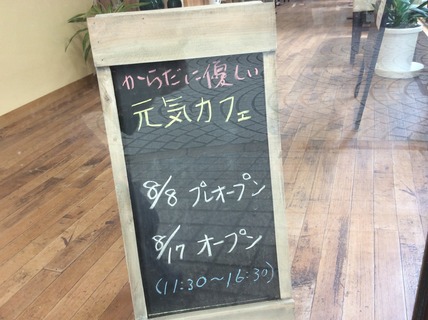 からだに優しい
元気カフェ
8/8 プレオープン
8/17 オープン
(11:30～16:30)